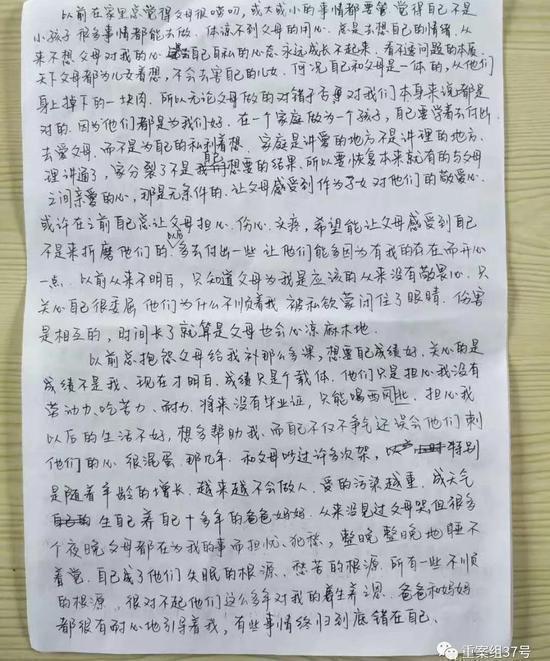 以前在家里总觉得父母很唠叨，或大或小的事情都要管，觉得自己不是
小孩子很多事情都能去做，体谅不到父母的用心，总是去想自己的情绪，从
来不想父母对我的心 自己自私的心态永远成长不起来，看不透问题的本质，
天下父母都为儿女着想，不会去害自己的儿女，何况自己和父母是一体的，从他们
身上掉下的一块肉，所以无论父母做的对错于否事对我们本身来说都是
对的，因为他们都是为我们好，在一个家庭做为一个孩子，自己要学着去付出，
去爱父母，而不是为自己的私利着想，家庭是讲爱的地方不是讲理的地方，
理讲通了，家分裂了不是自己想要的结果，所以要恢复本来就有的与父母
之间亲爱的心，那是无条件的，让父母感受到作为子女对他们的敬爱心，
或许在之前自己总让父母担心，伤心，头疼，希望能让父母感受到自己
不是来折磨他们的，多去付出一些 让他们能多因为有我的存在而开心
一点，以前从来不明白，只知道父母为我是应该的从来没有敬畏心，只
关心自己很委屈，他们为什么不顺着我 被私欲蒙闭住了眼睛，伤害
是相互的，时间长了就算是父母也会心凉麻木地，
以前总抱怨父母给我补那么多课，想要自己成绩好，关心的是
成绩不是我，现在才明白，成绩只是个载体，他们只是担心我没有
劳动力，吃苦力，耐力，将来没有毕业证，只能喝西北风，担心我
以后的生活不好，想多帮助我，而自己不仅不争气还误会他们刺
他们的心，很混蛋，那几年，和父母吵过许多次架， 特别
是随着年龄的增长，越来越不会做人，爱的污染越重，成天气
生自己养自己十多年的爸爸妈妈，从来没见过父母哭，但很多
个夜晚父母都在为我的事而担忧、犯愁，整晚整晚地睡不
着觉，自己成了他们失眠的根源，愁苦的根源，所有一些不顺
的根源，很对不起他们这么多年对我的养生养之恩，爸爸和妈妈
都很有耐心地引导着我，有些事情终归到底错在自己，
重案组37号